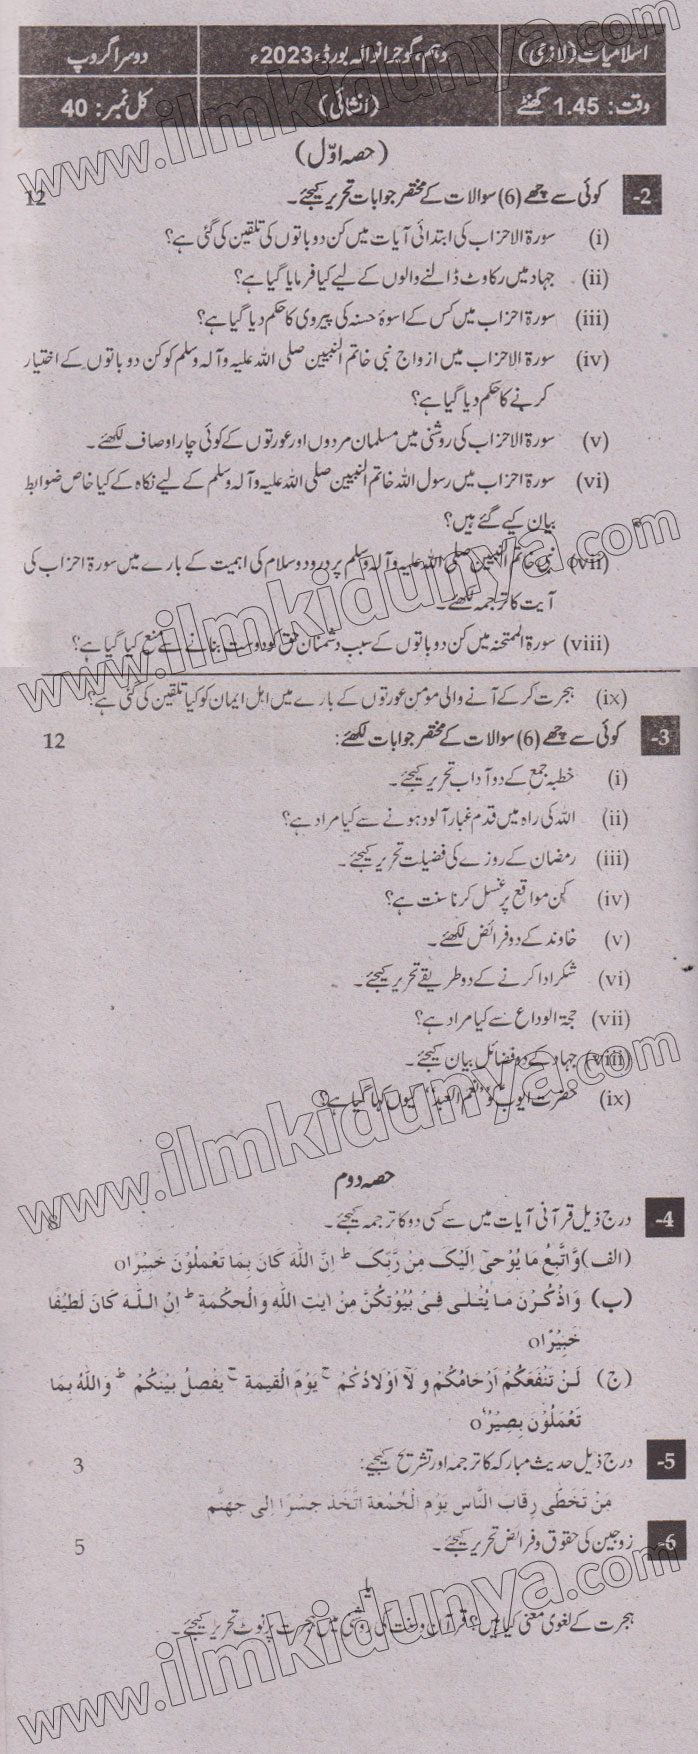 اسلامیات (لازمی) دہم، گوجرانوالہ بورڈ، 2023ء دوسرا گروپ
وقت: 1.45 گھنٹے (انشائی) کل نمبر: 40
(حصہ اوّل)
2- کوئی سے چھے (6) سوالات کے مختصر جوابات تحریر کیجئے۔ 12
(i) سورۃ الاحزاب کی ابتدائی آیات میں کن دو باتوں کی تلقین کی گئی ہے؟
(ii) جہاد میں رکاوٹ ڈالنے والوں کے لیے کیا فرمایا گیا ہے؟
(iii) سورۃ احزاب میں کس کے اسوۂ حسنہ کی پیروی کا حکم دیا گیا ہے؟
(iv) سورۃ الاحزاب میں ازواج نبی خاتم النبیین صلی اللہ علیہ وآلہ وسلم کو کن دو باتوں کے اختیار
کرنے کا حکم دیا گیا ہے؟
(v) سورۃ الاحزاب کی روشنی میں مسلمان مردوں اور عورتوں کے کوئی چار اوصاف لکھئے۔
(vi) سورۃ احزاب میں رسول اللہ خاتم النبیین صلی اللہ علیہ وآلہ وسلم کے لیے نکاہ کے کیا خاص ضوابط
بیان کیے گئے ہیں؟
(vii) نبی خاتم النبیین صلی اللہ علیہ وآلہ وسلم پر درود و سلام کی اہمیت کے بارے میں سورۃ احزاب کی
آیت کا ترجمہ لکھئے۔
(viii) سورۃ الممتحنہ میں کن دو باتوں کے سبب دشمنان حق کو دوست بنانے سے منع کیا گیا ہے؟
(ix) ہجرت کر کے آنے والی مومن عورتوں کے بارے میں اہل ایمان کو کیا تلقین کی گئی ہے؟
3- کوئی سے چھے (6) سوالات کے مختصر جوابات لکھئے: 12
(i) خطبہ جمع کے دو آداب تحریر کیجئے۔
(ii) اللہ کی راہ میں قدم غبار آلود ہونے سے کیا مراد ہے؟
(iii) رمضان کے روزے کی فضیلت تحریر کیجئے۔
(iv) کن مواقع پر غسل کرنا سنت ہے؟
(v) خاوند کے دو فرائض لکھئے۔
(vi) شکر ادا کرنے کے دو طریقے تحریر کیجئے۔
(vii) حجۃ الوداع سے کیا مراد ہے؟
(viii) جہاد کے دو فضائل بیان کیجئے۔
(ix) حضرت ایوبؑ کو ”نعم العبد“ کیوں کہا گیا ہے؟
حصہ دوم
4- درج ذیل قرآنی آیات میں سے کسی دو کا ترجمہ کیجئے۔ 8
(الف) وَّاتَّبِعْ مَا يُوْحٰٓى اِلَيْكَ مِنْ رَّبِّكَ ؕ اِنَّ اللّٰهَ كَانَ بِمَا تَعْمَلُوْنَ خَبِيْرًا o
(ب) وَاذْكُرْنَ مَا يُتْلٰى فِىْ بُيُوْتِكُنَّ مِنْ اٰيٰتِ اللّٰهِ وَالْحِكْمَةِ ؕ اِنَّ اللّٰهَ كَانَ لَطِيْفًا
خَبِيْرًا o
(ج) لَنْ تَنْفَعَكُمْ اَرْحَامُكُمْ وَ لَآ اَوْلَادُكُمْ ۚ يَوْمَ الْقِيٰمَةِ ۚ يَفْصِلُ بَيْنَكُمْ ؕ وَاللّٰهُ بِمَا
تَعْمَلُوْنَ بَصِيْرٌ o
5- درج ذیل حدیث مبارکہ کا ترجمہ اور تشریح کیجیے: 3
مَنْ تَخَطّٰى رِقَابَ النَّاسِ يَوْمَ الْجُمُعَةِ اتَّخَذَ جِسْرًا اِلٰى جَهَنَّمَ
6- زوجین کی حقوق و فرائض تحریر کیجئے۔ 5
یا
ہجرت کے لغوی معنی کیا ہیں؟ قرآن و سنت کی روشنی میں ہجرت پر نوٹ تحریر کیجئے۔
www.ilmkidunya.com
www.ilmkidunya.com
www.ilmkidunya.com
www.ilmkidunya.com